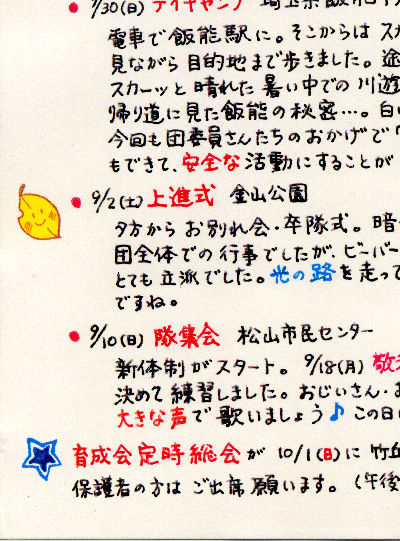 7/30(日) デイキャンプ 埼玉県飯
電車で飯能駅に。そこからは ス
見ながら目的地まで歩きました。途
スカーッと晴れた暑い中での川遊
帰り道に見た飯能の秘密…。白
今回も団委員さんたちのおかげで
もできて、安全な活動にすることが
9/2(土) 上進式 金山公園
夕方から お別れ会・卒隊式。暗
団全体での行事でしたが、ビーバー
とても立派でした。光の路を走って
ですね。
9/10(日) 隊集会 松山市民センター
新体制がスタート。9/18(月) 敬
決めて練習しました。おじいさん・お
大きな声で歌いましょう♪ この日
育成会定時総会が 10/1(日)に 竹
保護者の方は ご出席願います。(午後